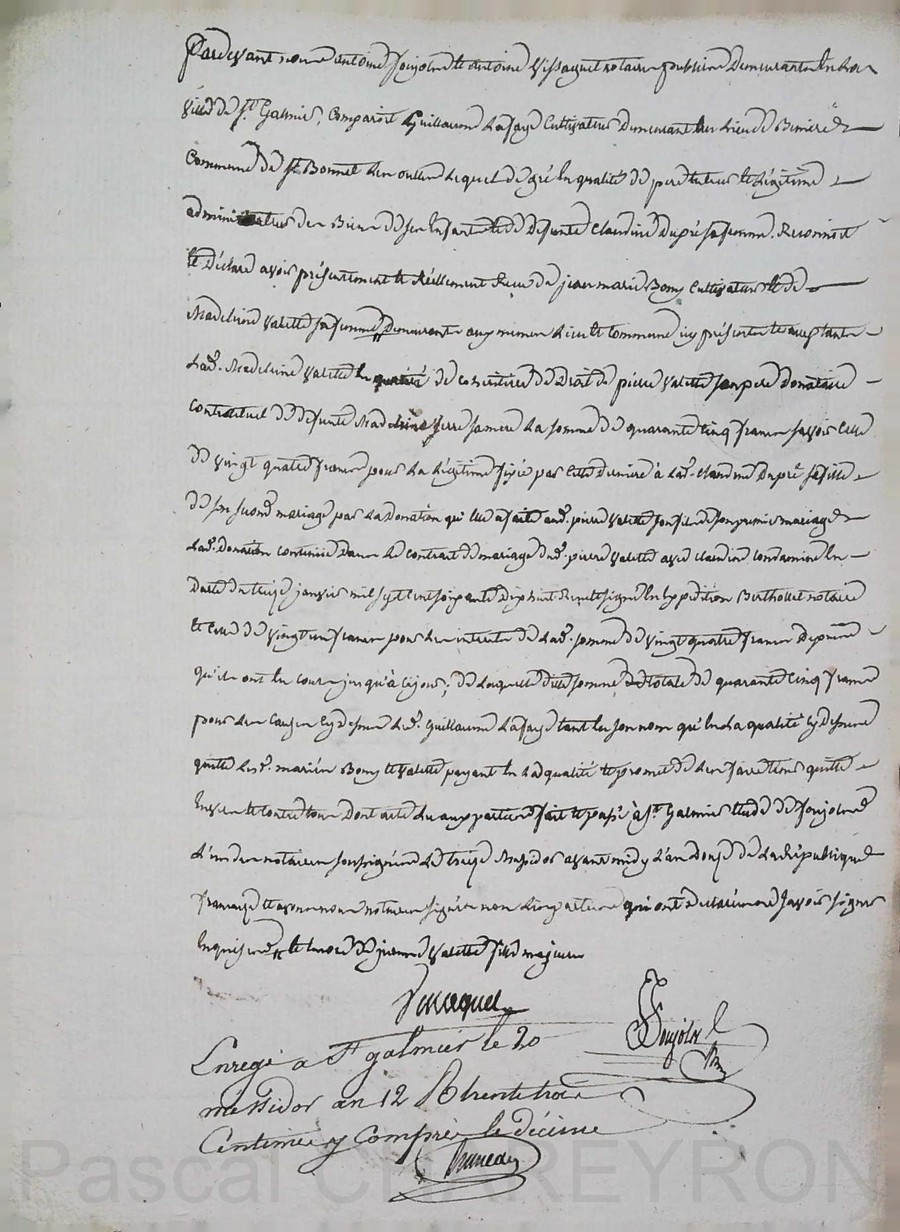 Pardevant nous antoine Soujolre et antoine Vissaguet notaires publics Demeurants En La
ville de St. Galmier, Comparoit Guillaume Lafaye Cultivateur Demeurant lieu de
Commune de St Bonnet Les oulles Lequel de gré En qualité de pere tuteur et légitime
administrateur des Biens de ses Enfants et de Defunte Claudine Dupré sa femme, Reconnoit
et Déclare avoir présentement et Réellement Reçu de jean marie Bony Cultivateur et de
Madeleine Valette sa femme, Demeurants aux mêmes Lieu et Commune icy présents et acceptants
Lad. Madeleine Valette En qualité de cohéritiere De Droit de pierre Valette son pere Donataire
contractuel de defunte Madeleine sa mere La somme de quarante Cinq francs savoir Celle
de vingt quatre francs pour La Légitime fixée par Cette derniere à Lad. Claudine Dupré sa fille
de son second mariage par La Donation qu'elle a faite aud. pierre Valette son fils de son premier mariage
Lad. donation contenue Dans Le contrat de mariage dud. pierre Valette avec claudine condamine En
Datte du treize janvier mil sept Cent soixante Dix huit signé En Expédition Berthollet notaire
et Celle de vingt un francs pour Les interets de Lad. somme de vingt quatre francs Depuis
qu'ils ont En cours jusqu'à Ce jour; de Laquelle ditte somme totale de quarante Cinq francs
pour Les Causes Cy dessus Led. Guillaume Lafaye tant En son nom qu'En La qualité Cy dessus
quitte Lesd. mariés Bony et Valette payant En Lad qualité et promet de Les faire tenir quitte
Envers et contre tous Dont acte Lu aux parties fait et passé à St. Galmier Etude de Soujolre
L'un des notaires soussignés Le treize Messidor avant midy L'an Douze de La République
française et avons nous notaires signé non Les parties qui ont déclaré ne savoir signer
Enquises, et de Valette fille majeure
Vissaguet
Soujolre
Enregé a St galmier le 20
messidor an 12 R trente trois
Centimes y compris le décime
Pascal CHAREYRON